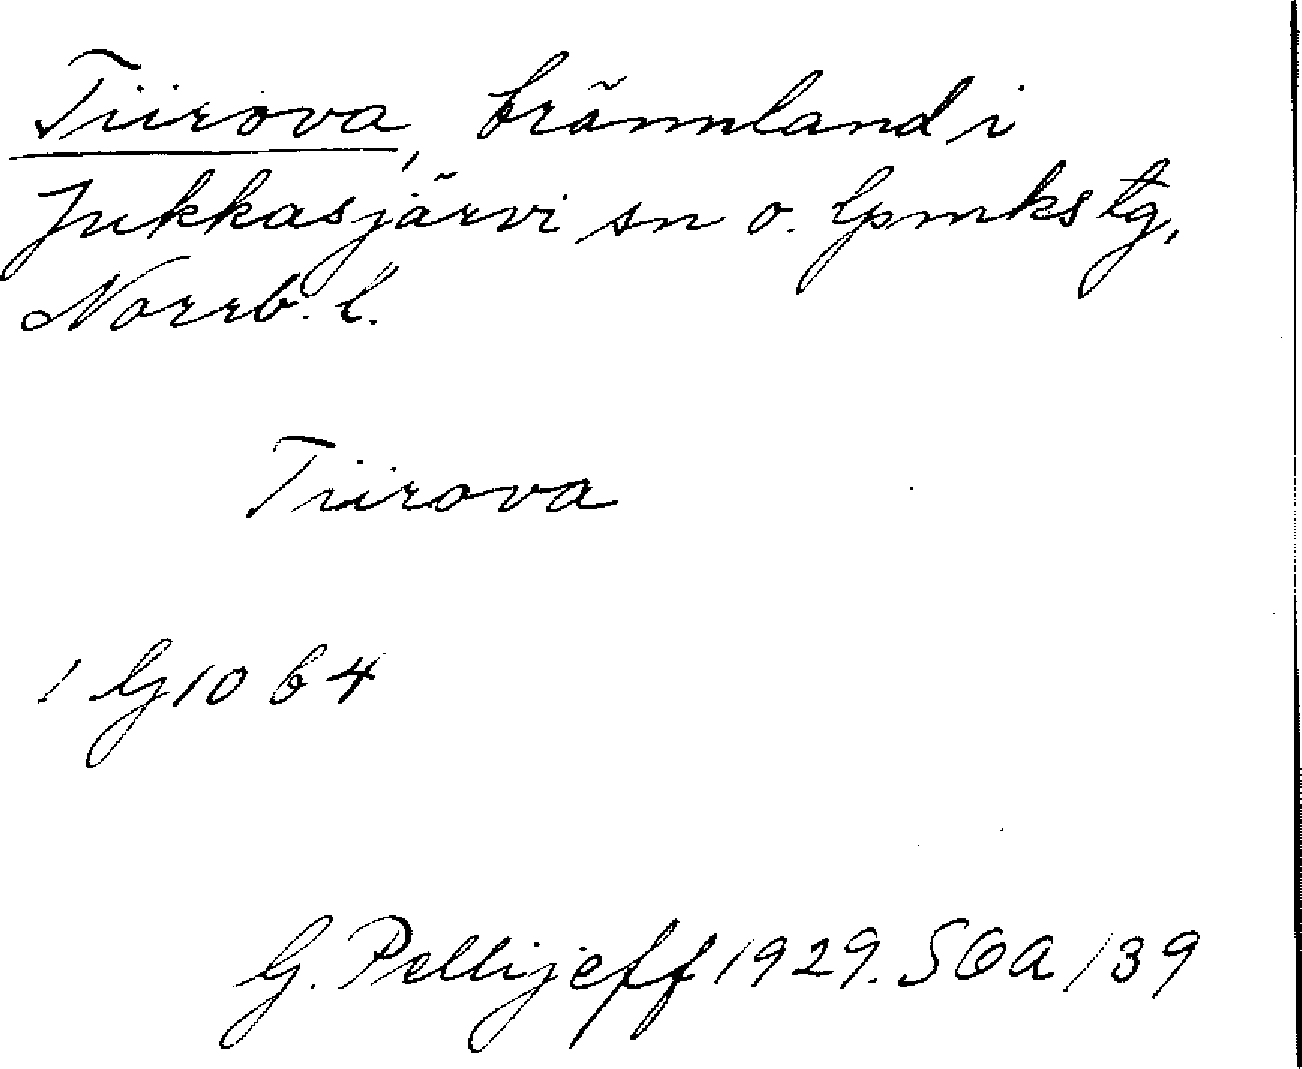 Tiirova, brännland i
Jukkasjärvi sn o. lpmks tg,
Norrb. l.
Tiirova
1 G 10 b 4
G. Pellijeff 1929. SOA /39